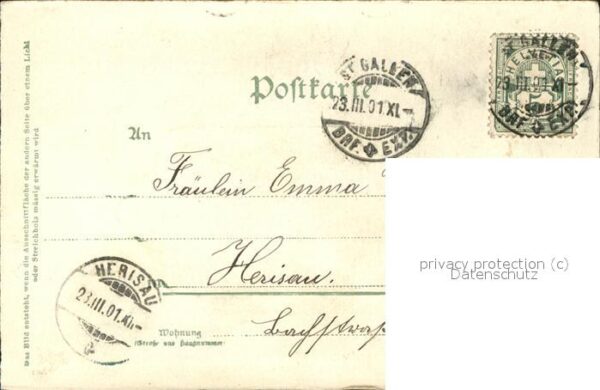 Postkarte
ST. GALLEN
23.III.01.XI-
BRF. EXP.
ST. GALLEN
23.III.01.XI
BRF. EXP.
HELVETIA
An
Fräulein Emma
Herisau.
HERISAU
23.III.01.XI-
Wohnung
(Strasse und Hausnummer)
Bachstrass
Das Bild entsteht, wenn die Ausschnittfläche der andern Seite über einem Licht
oder Streichholz mässig erwärmt wird
privacy protection (c)
Datenschutz